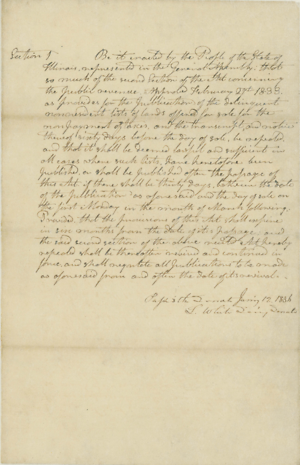 Section 1. Be it enacted by the People of the State of
Illinois, represented in the General Assembly. That
so much of the second Section of the Act concerning
the public revenue approved February 27th 1833,
as provides for the publication of the delinquent
nonresident lists of lands offered for sale for the
nonpayment of taxes, and the
sixty days before the day of sale, be repealed
and that it shall be deemed lawful and sufficient in
all cases where such lists, have heretofore been
published or shall be published after the passage of
this Act if there shall be thirty days between the date
of the publication as aforesaid and the day of sale on
the first Monday in the month of March following
Provided that the provisions of this Act shall expire
in six months from the date of its passage, and
the said second section of the above Act hereby
repealed shall be thereafter revived and continued in
force and shall regulate all publications to be made
as aforesaid from and after the date of
Senate Jany 12. 1836
L. White